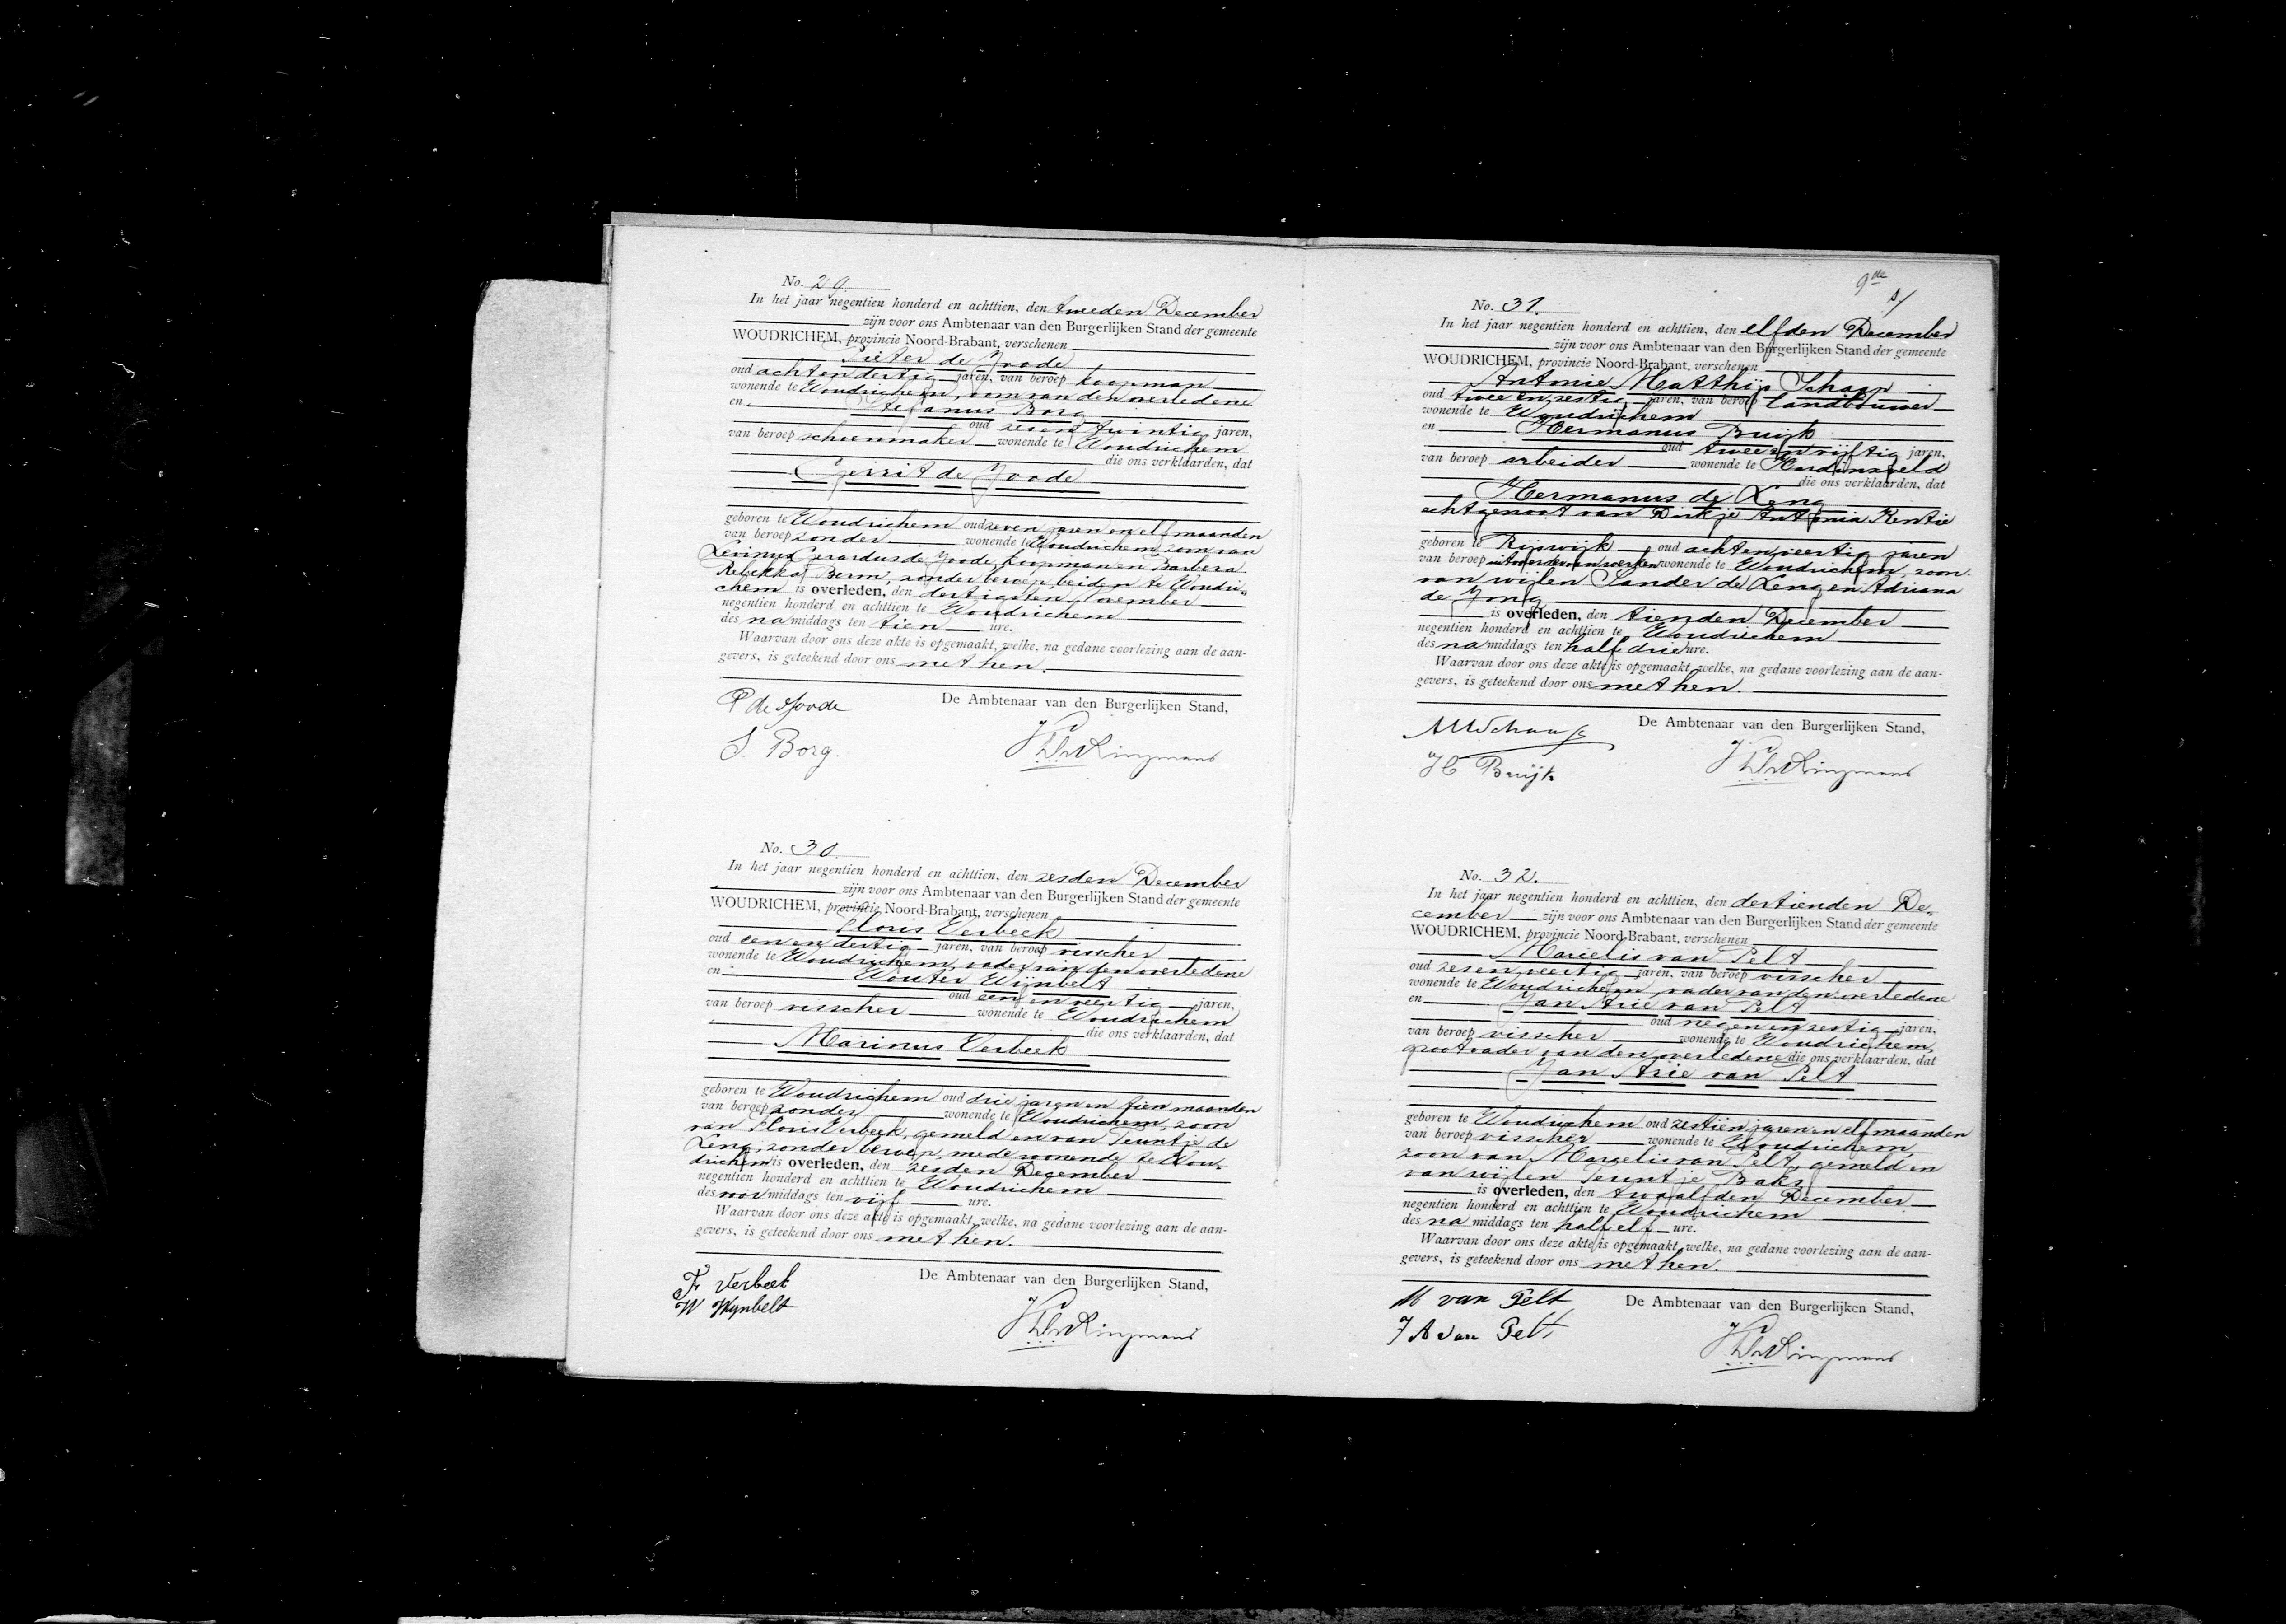 No. 29.
In het jaar negentien honderd en achttien, den tweeden December
zijn voor ons Ambtenaar van den Burgerlijken Stand der gemeente
WOUDRICHEM, provincie Noord-Brabant, verschenen
Pieter de Joode
oud achtendertig jaren, van beroep koopman
wonende te Woudrichem, oom van den overledene
en Stefanus Borg
oud zesentwintig jaren,
van beroep schoenmaker wonende te Woudrichem
die ons verklaarden, dat
Gerrit de Joode
geboren te Woudrichem oud zeven jaren en elf maanden
van beroep zonder wonende te Woudrichem, zoon van
Levinus Gerardus de Joode, koopman en Barbera
Rebekka Berm, zonder beroep, beiden te Woudri-
chem is overleden, den dertigsten November
negentien honderd en achttien te Woudrichem
des namiddags ten tien ure.
Waarvan door ons deze akte is opgemaakt, welke, na gedane voorlezing aan de aan-
gevers, is geteekend door ons met hen.
P de Joode
De Ambtenaar van den Burgerlijken Stand,
S. Borg.
No. 30.
In het jaar negentien honderd en achttien, den zesden December
zijn voor ons Ambtenaar van den Burgerlijken Stand der gemeente
WOUDRICHEM, provincie Noord-Brabant, verschenen
Floris Verbeek
oud eenendertig jaren, van beroep visscher
wonende te Woudrichem, vader van den overledene
en Wouter Wijnbelt
oud eenenveertig jaren,
van beroep visscher wonende te Woudrichem
die ons verklaarden, dat
Marinus Verbeek
geboren te Woudrichem oud drie jaren en tien maanden
van beroep zonder wonende te Woudrichem, zoon
van Floris Verbeek, gemeld en van Teuntje de
Leng, zonder beroep, mede wonende te Wou-
drichem is overleden, den zesden December
negentien honderd en achttien te Woudrichem
des voormiddags ten vijf ure.
Waarvan door ons deze akte is opgemaakt, welke, na gedane voorlezing aan de aan-
gevers, is geteekend door ons met hen.
F Verbeek
De Ambtenaar van den Burgerlijken Stand,
W Wynbelt
9de
No. 31.
In het jaar negentien honderd en achttien, den elfden December
zijn voor ons Ambtenaar van den Burgerlijken Stand der gemeente
WOUDRICHEM, provincie Noord-Brabant, verschenen
Antonie Matthijs Schaap
oud tweeenzestig jaren, van beroep landbouwer
wonende te Woudrichem
en Hermanus Bruijk
oud tweeenvijftig jaren,
van beroep arbeider wonende te Hardinxveld
die ons verklaarden, dat
Hermanus de Leng
echtgenoot van Dirkje Antonia Rentie
geboren te Rijswijk oud achtenveertig jaren
van beroep uitvoerder van werken wonende te Woudrichem, zoon
van wijlen Sander de Leng en Adriana
de Jong
is overleden, den tienden December
negentien honderd en achttien te Woudrichem
des namiddags ten half drie ure.
Waarvan door ons deze akte is opgemaakt, welke, na gedane voorlezing aan de aan-
gevers, is geteekend door ons met hen.
AMSchaap
De Ambtenaar van den Burgerlijken Stand,
H Bruijk
No. 32.
In het jaar negentien honderd en achttien, den dertienden De-
cember zijn voor ons Ambtenaar van den Burgerlijken Stand der gemeente
WOUDRICHEM, provincie Noord-Brabant, verschenen
Marcelis van Pelt
oud zesenveertig jaren, van beroep visscher
wonende te Woudrichem, vader van den overledene
en Jan Arie van Pelt
oud negenenzestig jaren,
van beroep visscher wonende te Woudrichem,
grootvader van den overledene die ons verklaarden, dat
Jan Arie van Pelt
geboren te Woudrichem oud zestien jaren en elf maanden
van beroep visscher wonende te Woudrichem,
zoon van Marcelis van Pelt, gemeld en
van wijlen Teuntje Baks
is overleden, den twaalfden December
negentien honderd en achttien te Woudrichem
des namiddags ten half elf ure.
Waarvan door ons deze akte is opgemaakt, welke, na gedane voorlezing aan de aan-
gevers, is geteekend door ons met hen.
M van Pelt
De Ambtenaar van den Burgerlijken Stand,
J A van Pelt